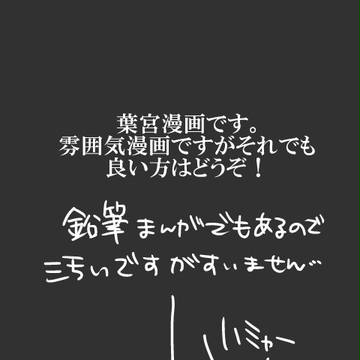 葉宮漫画です。
雰囲気漫画ですがそれでも
良い方はどうぞ！
鉛筆まんがでもあるので
汚いですがすいません…
ハミャー